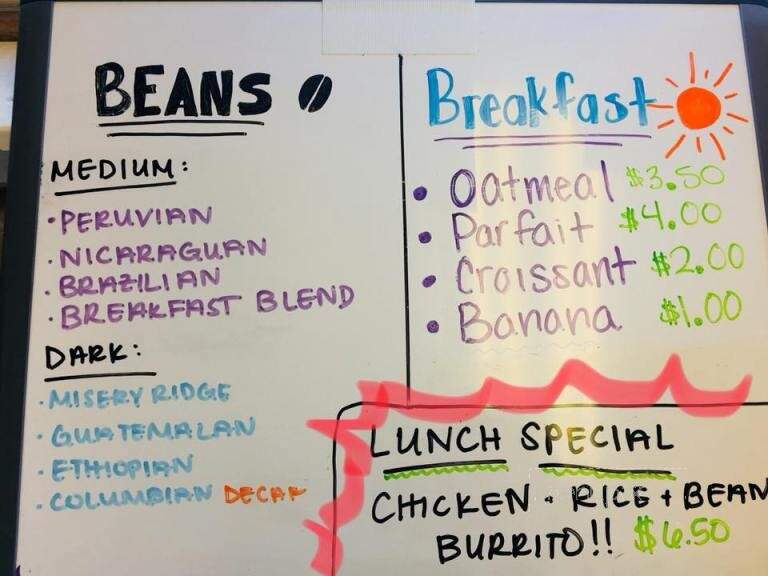 BEANS
MEDIUM:
• PERUVIAN
• NICARAGUAN
• BRAZILIAN
• BREAKFAST BLEND
DARK:
• MISERY RIDGE
• GUATEMALAN
• ETHIOPIAN
• COLUMBIAN DECAF
Breakfast
• Oatmeal $3.50
• Parfait $4.00
• Croissant $2.00
• Banana $1.00
LUNCH SPECIAL
CHICKEN • RICE + BEAN
BURRITO!! $6.50